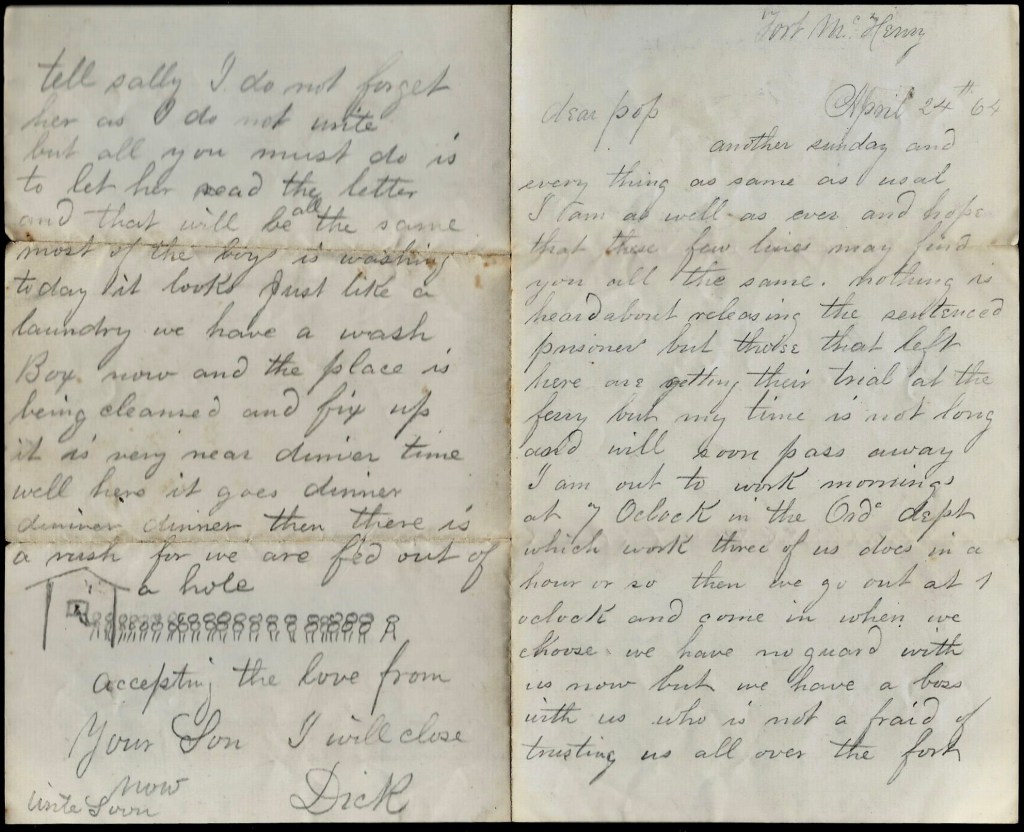 Fort Mc Henry
April 24th 64
dear pop
another sunday and
every thing as same as usal
I am as well as ever and hope
that these few lines may find
you all the same. nothing is
heard about releasing the sentenced
prisoner but those that left
here are getting their trial at the
ferry but my time is not long
and will soon pass away
I am out to work mornings
at 7 Oclock in the Ordc dept
which work three of us does in a
hour or so then we go out at 1
oclock and come in when we
choose we have no guard with
us now but we have a boss
with us who is not a fraid of
trusting us all over the fort
tell sally I do not forget
her as I do not write
but all you must do is
to let her read the letter
and that will be all the same
most of the boys is washing
today it looks Just like a
laundry we have a wash
Box now and the place is
being cleanned and fix up
it is very near dinner time
well here it goes dinner
dinner dinner then there is
a rush for we are fed out of
a hole
accepting the love from
Your Son I will close
now
write Soon
Dick